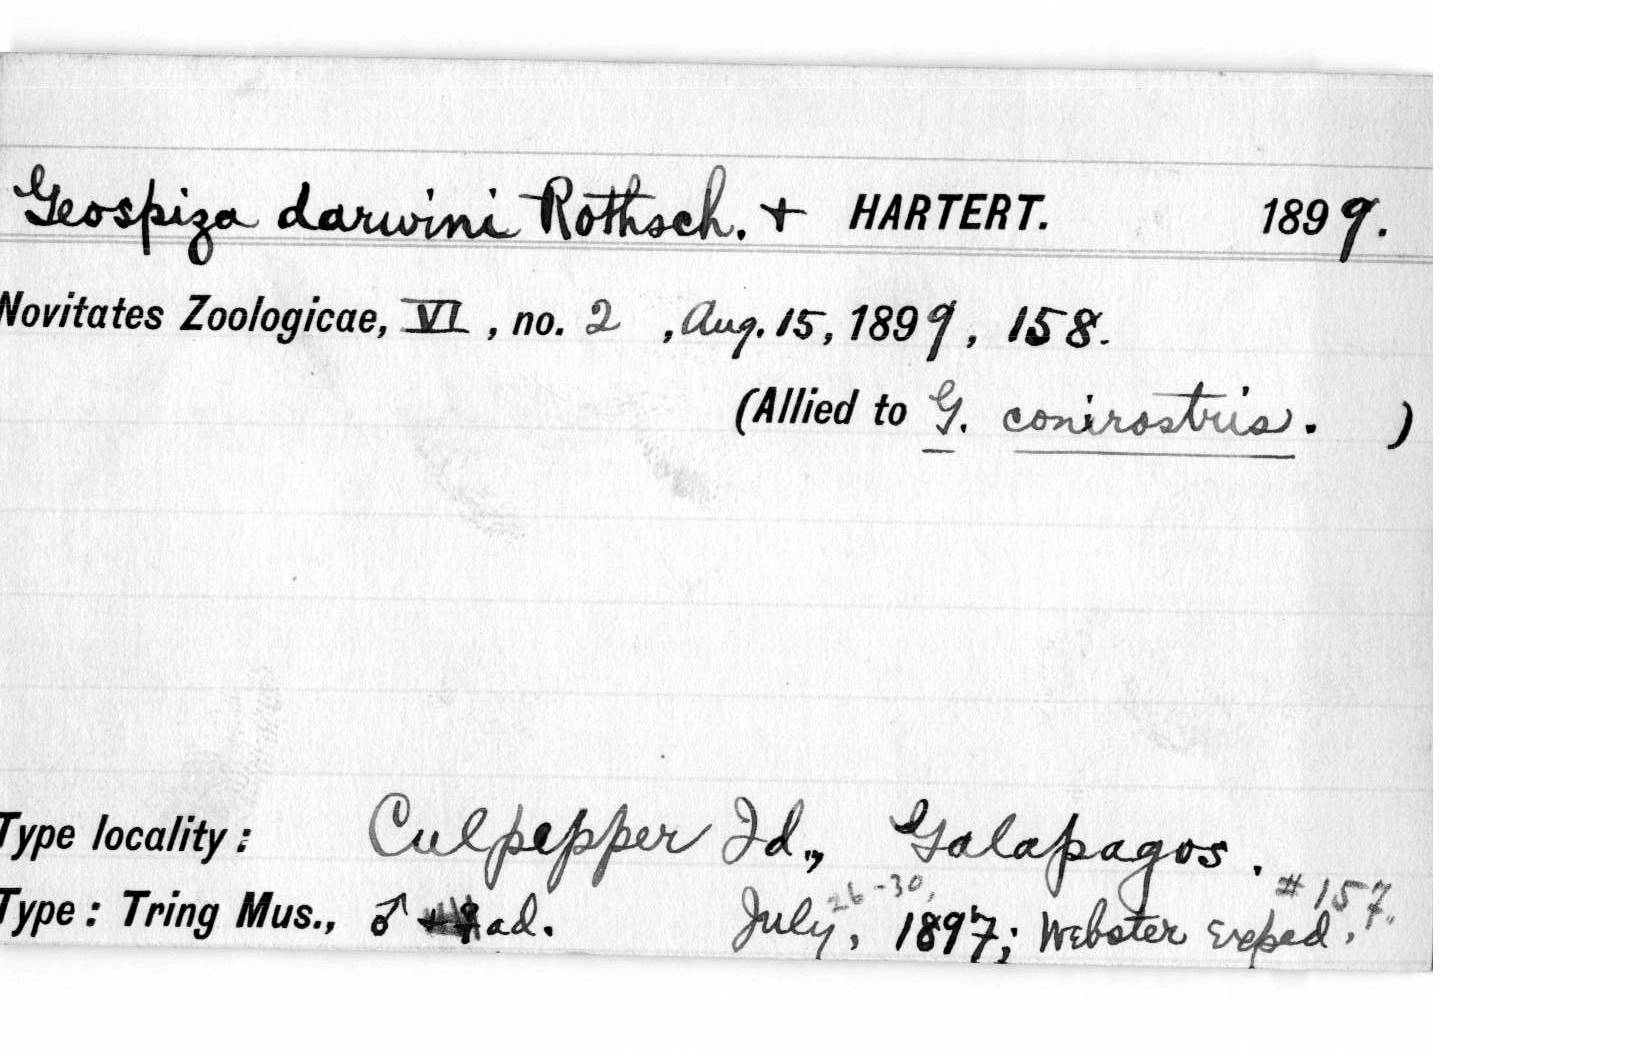 Geospiza darwini Rothsch. + HARTERT. 1899.
Novitates Zoologicae, VI, no. 2, Aug. 15, 1899, 158.
(Allied to G. conirostris. )
Type locality: Culpepper Id., Galapagos.
26-30, #157.
Type: Tring Mus., ♂ ad. July, 1897; Webster Exped.